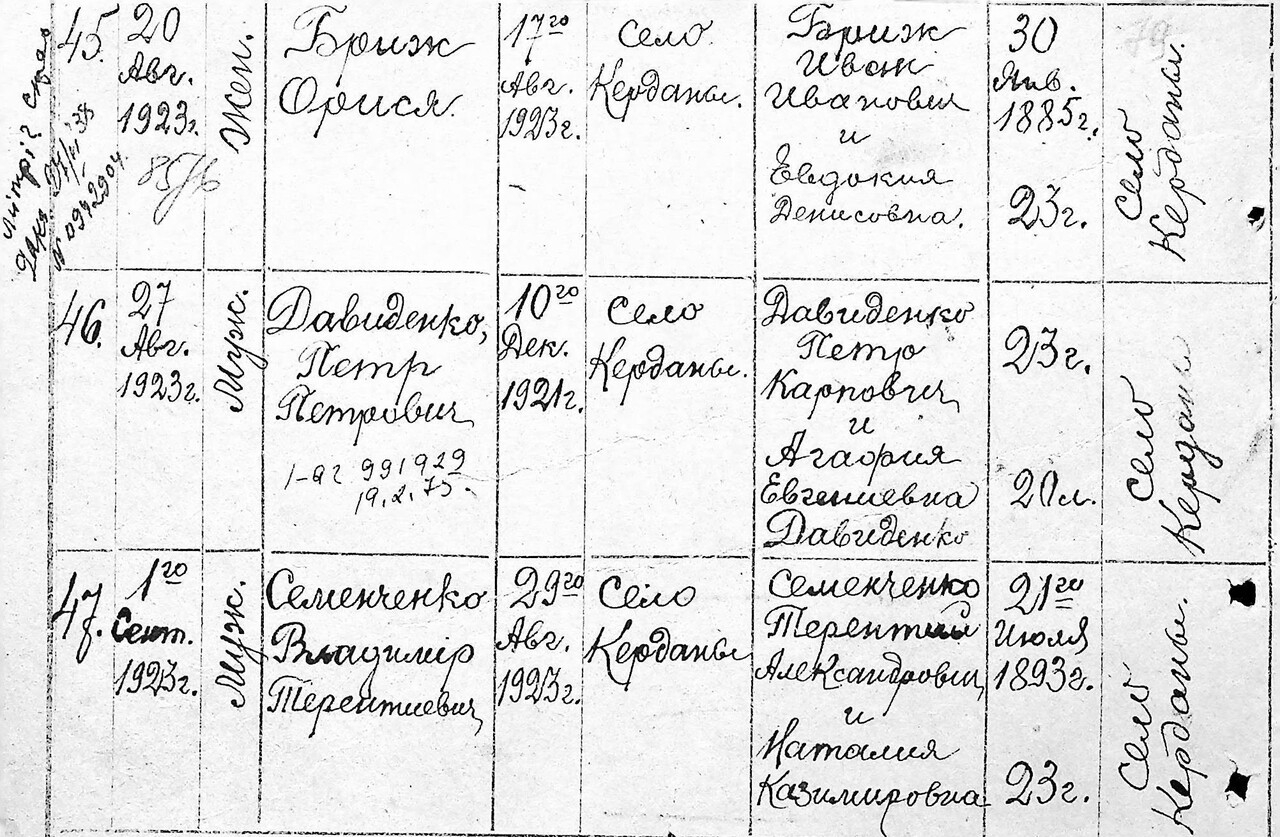 45.
20
Авг.
1923г.
85/6
Жен.
Бриж
Орися.
17го
Авг.
1923г.
Село
Керданы.
Бриж
Иван
Иванович
и
Евдокия
Денисовна.
30
Янв.
1885г.
23г.
Село
Керданы.
№ 0992904
46.
27
Авг.
1923г.
Муж.
Давиденко,
Петр
Петрович
1-аг 991929
19.2.75.
10го
Дек.
1921г.
Село
Керданы.
Давиденко
Петр
Карпович
и
Агафия
Евгениевна
Давиденко
23г.
20л.
Село
Керданы
47.
1го
Сент.
1923г.
Муж.
Семенченко
Владимір
Терентиевич
29го
Авг.
1923г.
Село
Керданы
Семенченко
Терентий
Александрович
и
Наталия
Казимировна
21го
Июля
1893г.
23г.
Село
Керданы.